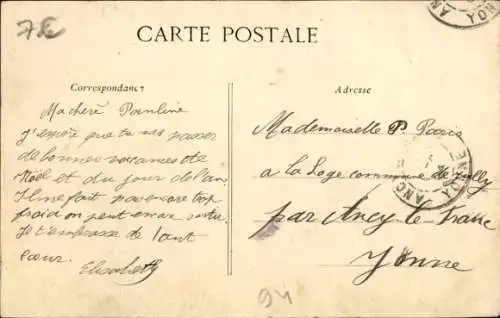 7 €
CARTE POSTALE
Correspondance
Adresse
Ma chere Pauline
J'espère que tu vas passer
de bonnes vacances de
Noël et du jour de l'an
Il ne fait pas encore trop
froid on peut encore sortir
Je t'embrasse de tout
cœur.
Elisabeth
Mademoiselle P. Paris
a la Loge commune de Jully
par Ancy-le-Franc
Yonne
94